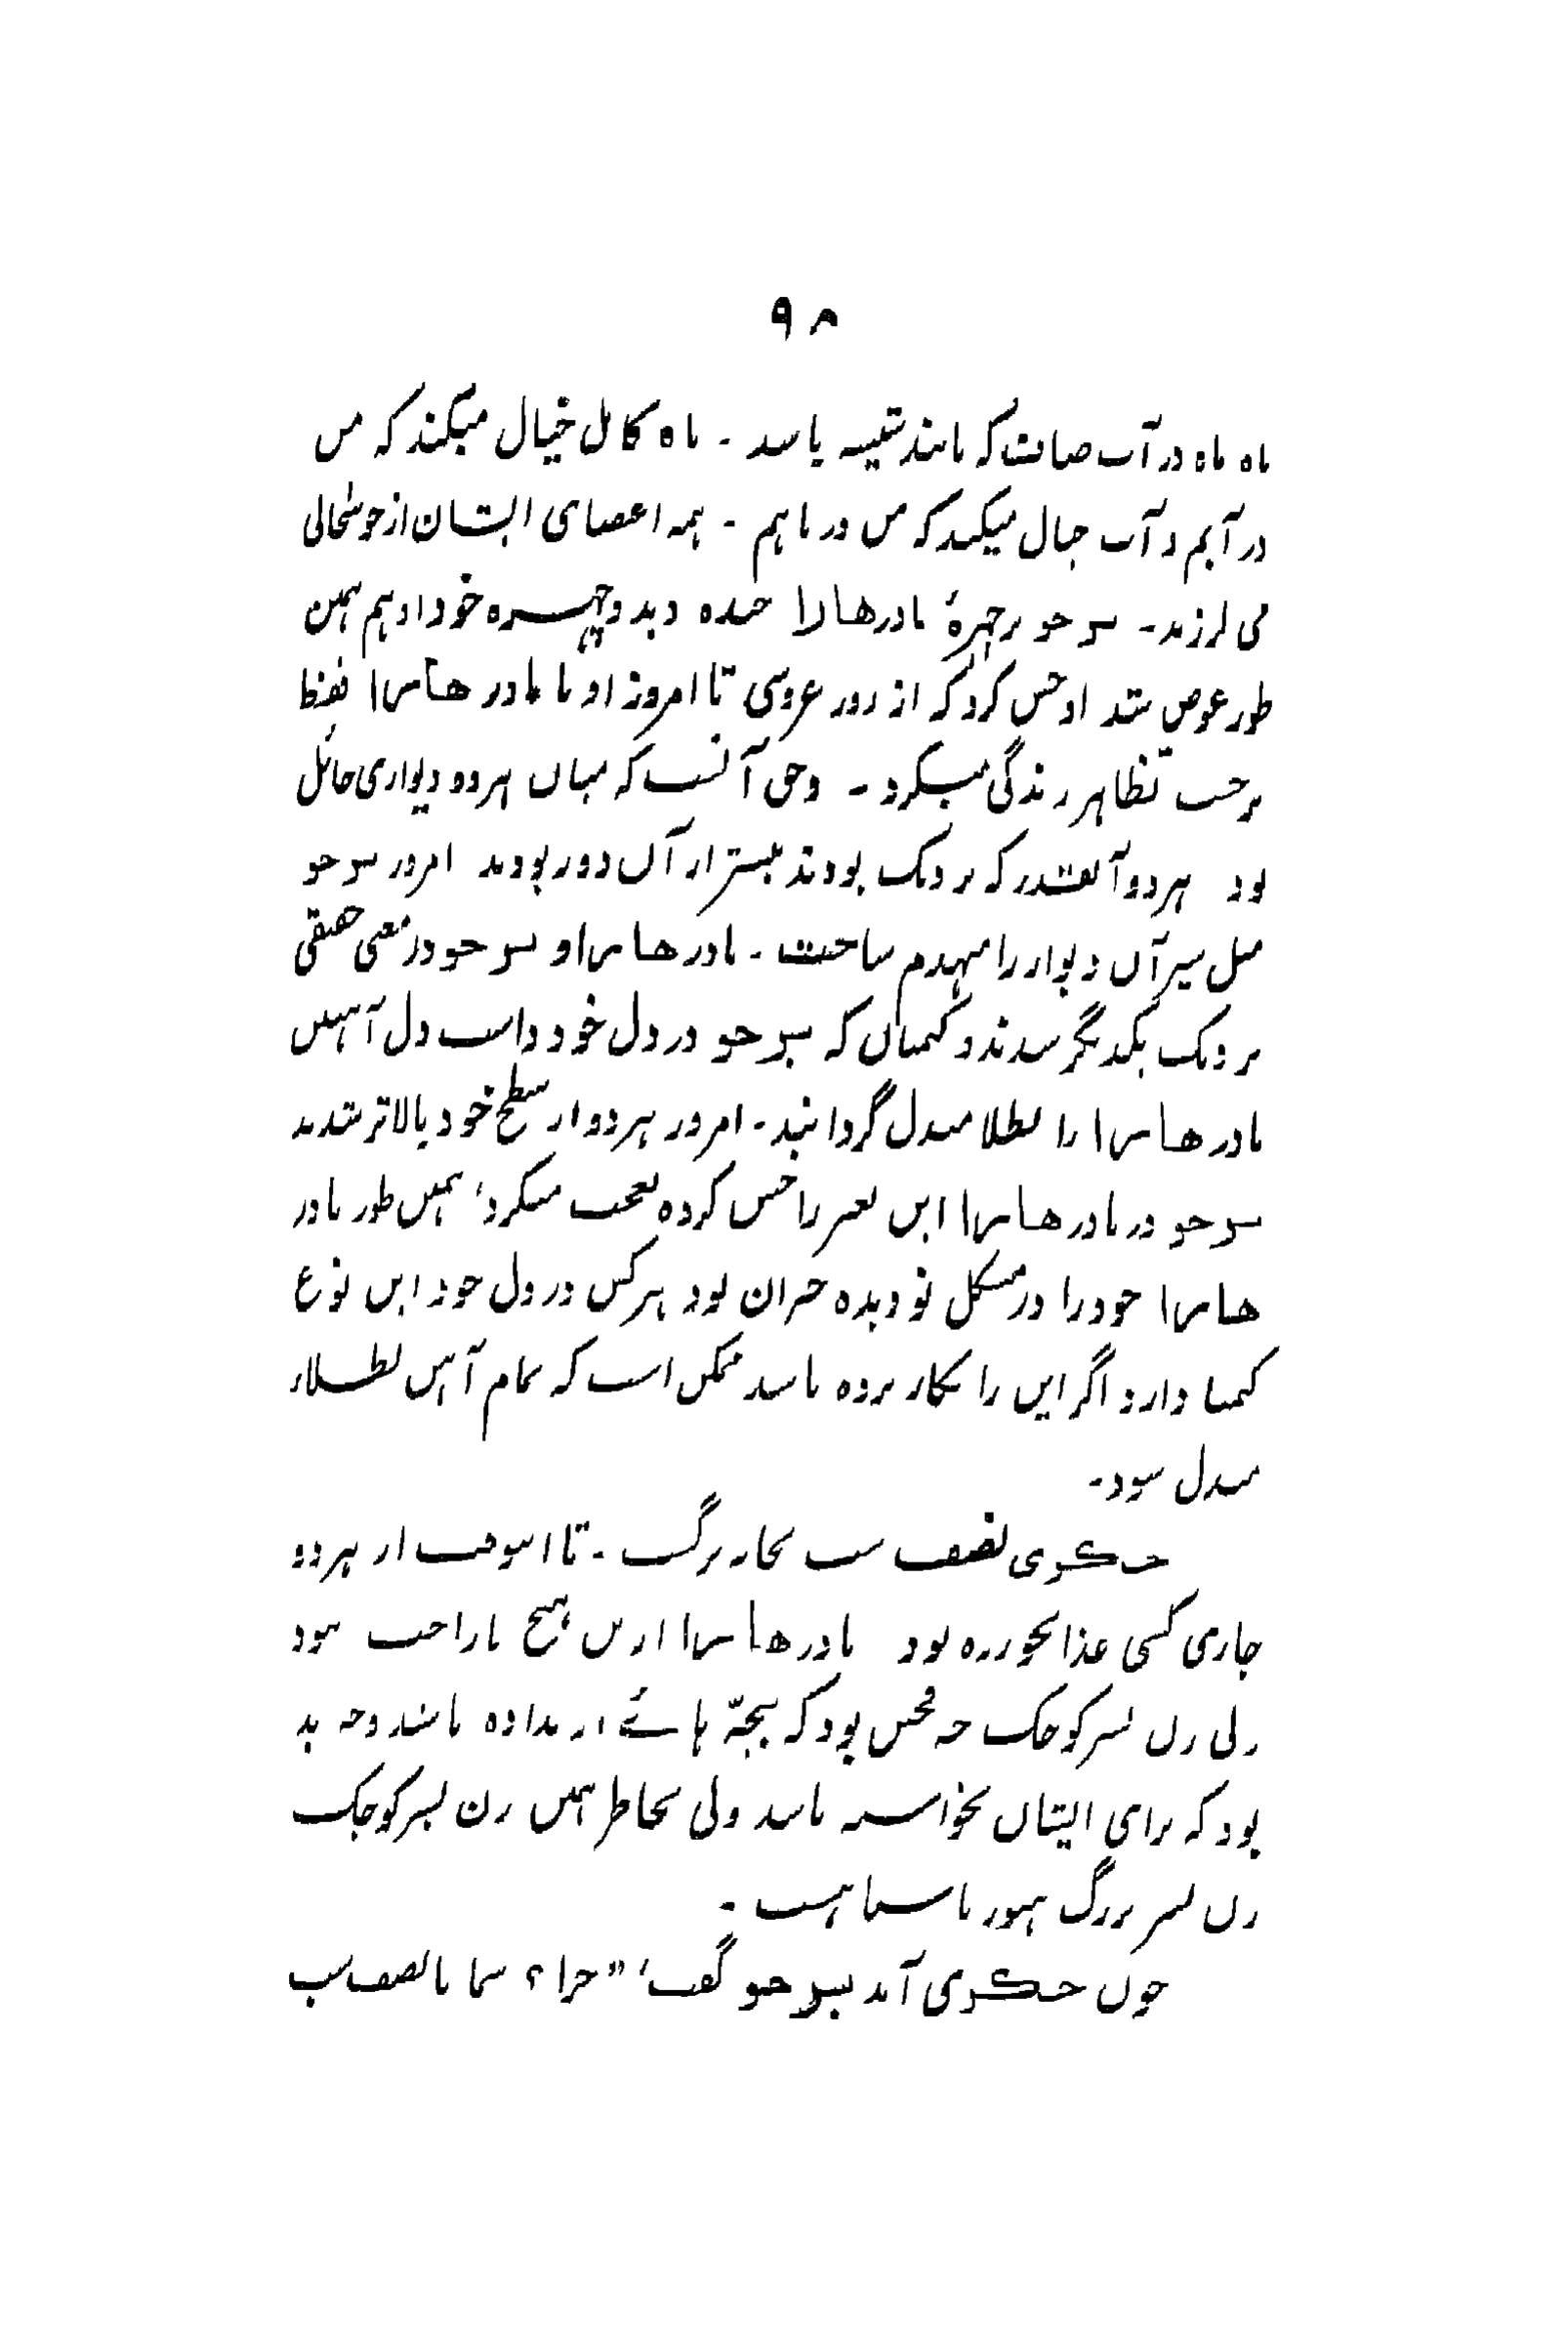 ۹۸
ماه ماه در آب صاف که مانند شیشه باشد - ماه کامل خیال میکند که من
در آبم و آب خیال میکند که من در ماهم - همه اعضای ایشان از خوشحالی
می لرزید - بر چهرهٔ مادرهارا خنده دید و چهره خود او هم همین
طور عوض شد او حس کرد که از روز عروسی تا امروز او با مادر هاسرا فقط
برحسب تظاهر زندگی میکرد - و حق آنست که میان هردو دیواری حائل
بود هردو آنقدر که نزدیک بودند بیشتر از آن دور بودند امروز
آن دیوار را منهدم ساخت - مادر هاسرا و در معنی حقیقی
نزدیک یکدیگر شدند و کیمیای که در دل خود داشت دل آهنین
مادر هاسرا را بطلا مبدل گردانید - امروز هردو از سطح خود بالاتر شدند
در مادر هاسرا این تغیر را حس کرده تعجب میکرد، همین طور مادر
هاسرا خود را در شکل نو دیده حیران بود هرکس در دل خود این نوع
کیمیا دارد اگر این را بکار برده باشد ممکن است که تمام آهن بطلا
مبدل شود -
نصف شب بخانه برگشت - تا اینوقت از هردو
جاری کسی غذا نخورده بود مادر هاسرا ازین هیچ ناراحت نبود
ولی زن پسر کوچک چه فحش بود که بچّه هائے او نداده باشد و چه بد
بود که برای ایشان نخواسته باشد ولی بخاطر همین زن پسر کوچک
زن پسر بزرگ هنوز ناشتا هست -
چون آمد گفت، "چرا؟ شما تا نصف شب